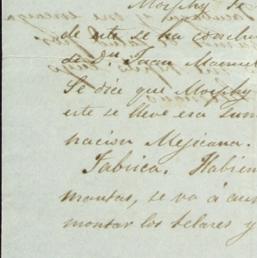 Morphy
de este se ha conclu
de Dn. Juan Manuel
Se dice que Morphy
este se lleve esa Sum
nacion Mejicana.
Fabrica. Habien
mantas, se va á au
montar los telares y